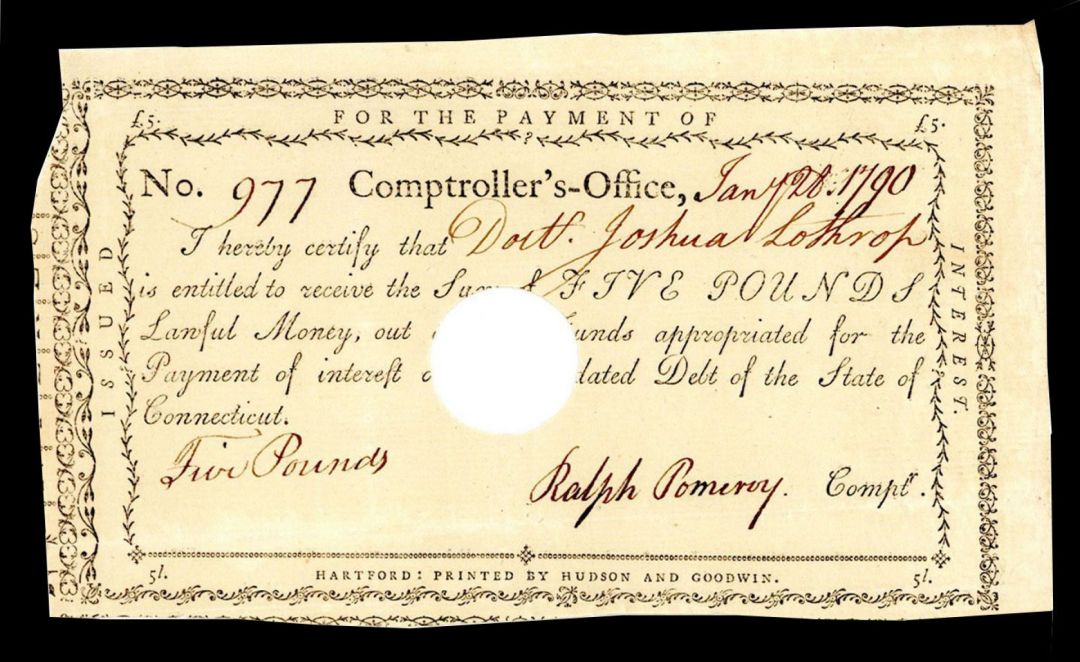 FOR THE PAYMENT OF
£5. £5.
No. 977 Comptroller's-Office, Jany 28. 1790
I hereby certify that Doctr. Joshua Lothrop
is entitled to receive the Sum of FIVE POUNDS
Lawful Money, out unds appropriated for the
Payment of interest dated Debt of the State of
Connecticut.
Five Pounds
Ralph Pomeroy. Comptr.
5l. HARTFORD: PRINTED BY HUDSON AND GOODWIN. 5l.
ISSUED
INTEREST.